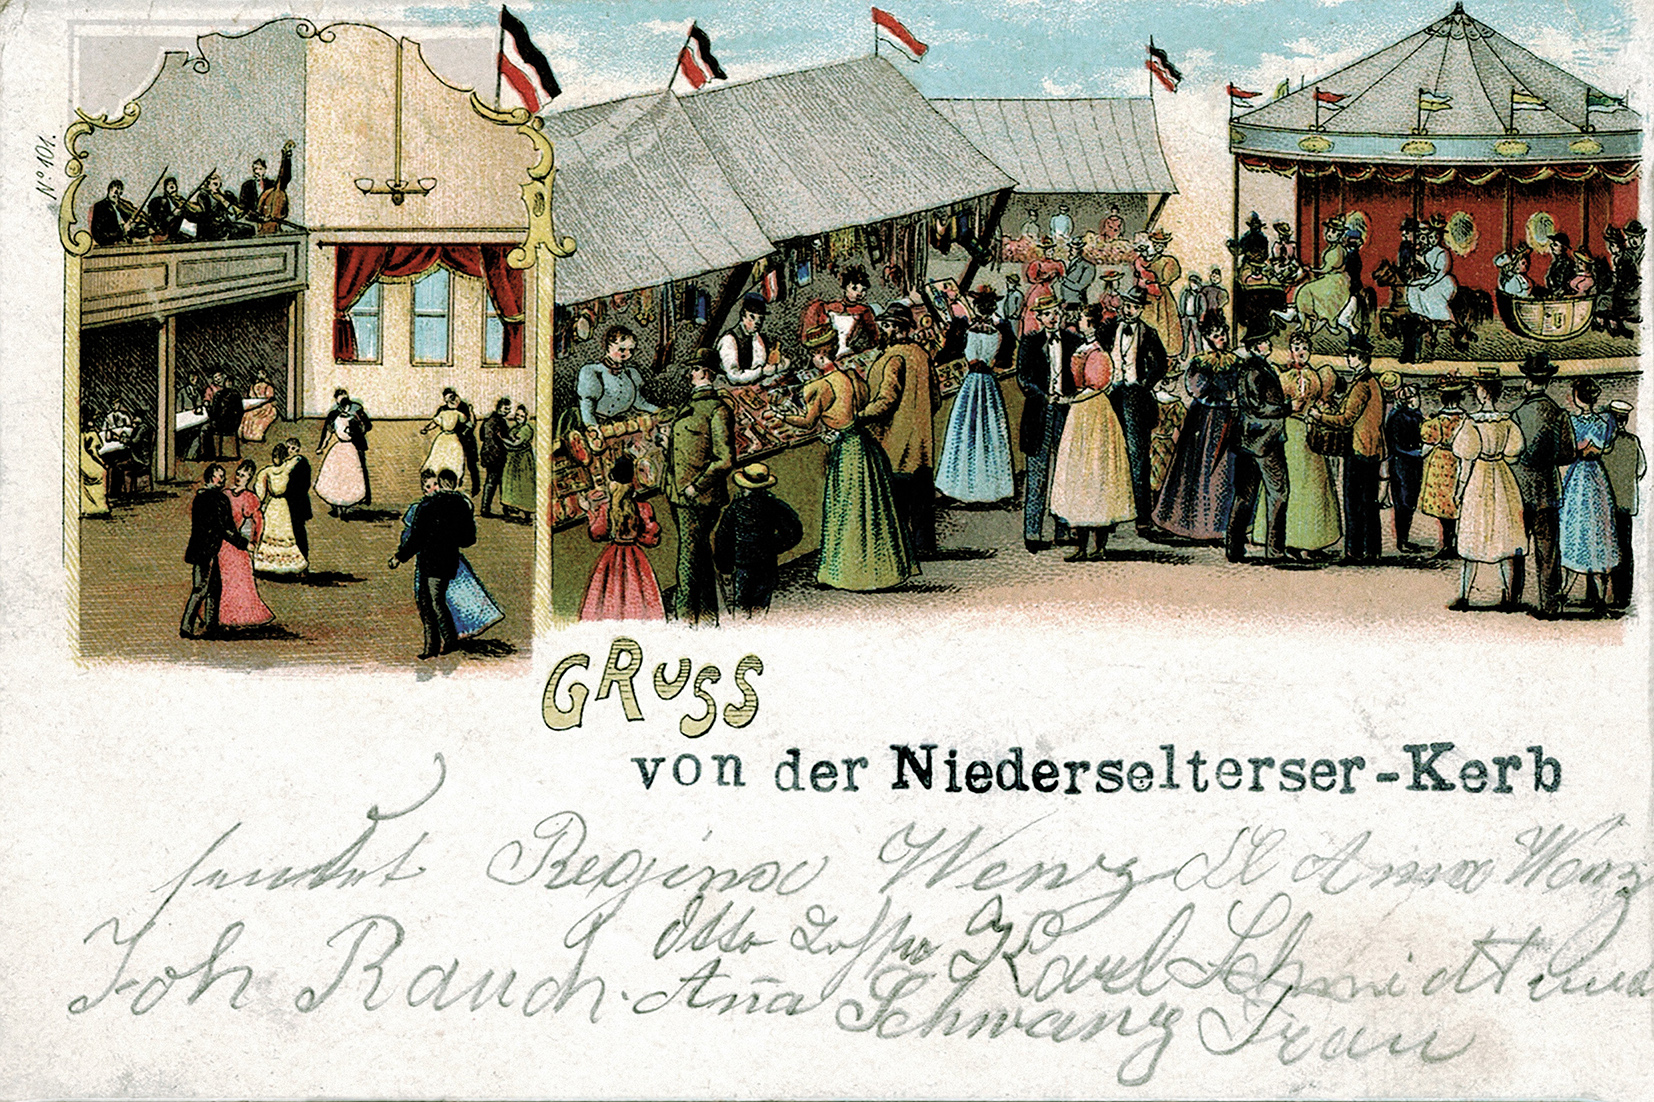 No. 101.
GRUSS
von der Niederselterser-Kerb
sendet Regina Wenz Anna Wenz
Otto
Joh Rauch. Karl Schmidt und
Anna Schwanz Frau